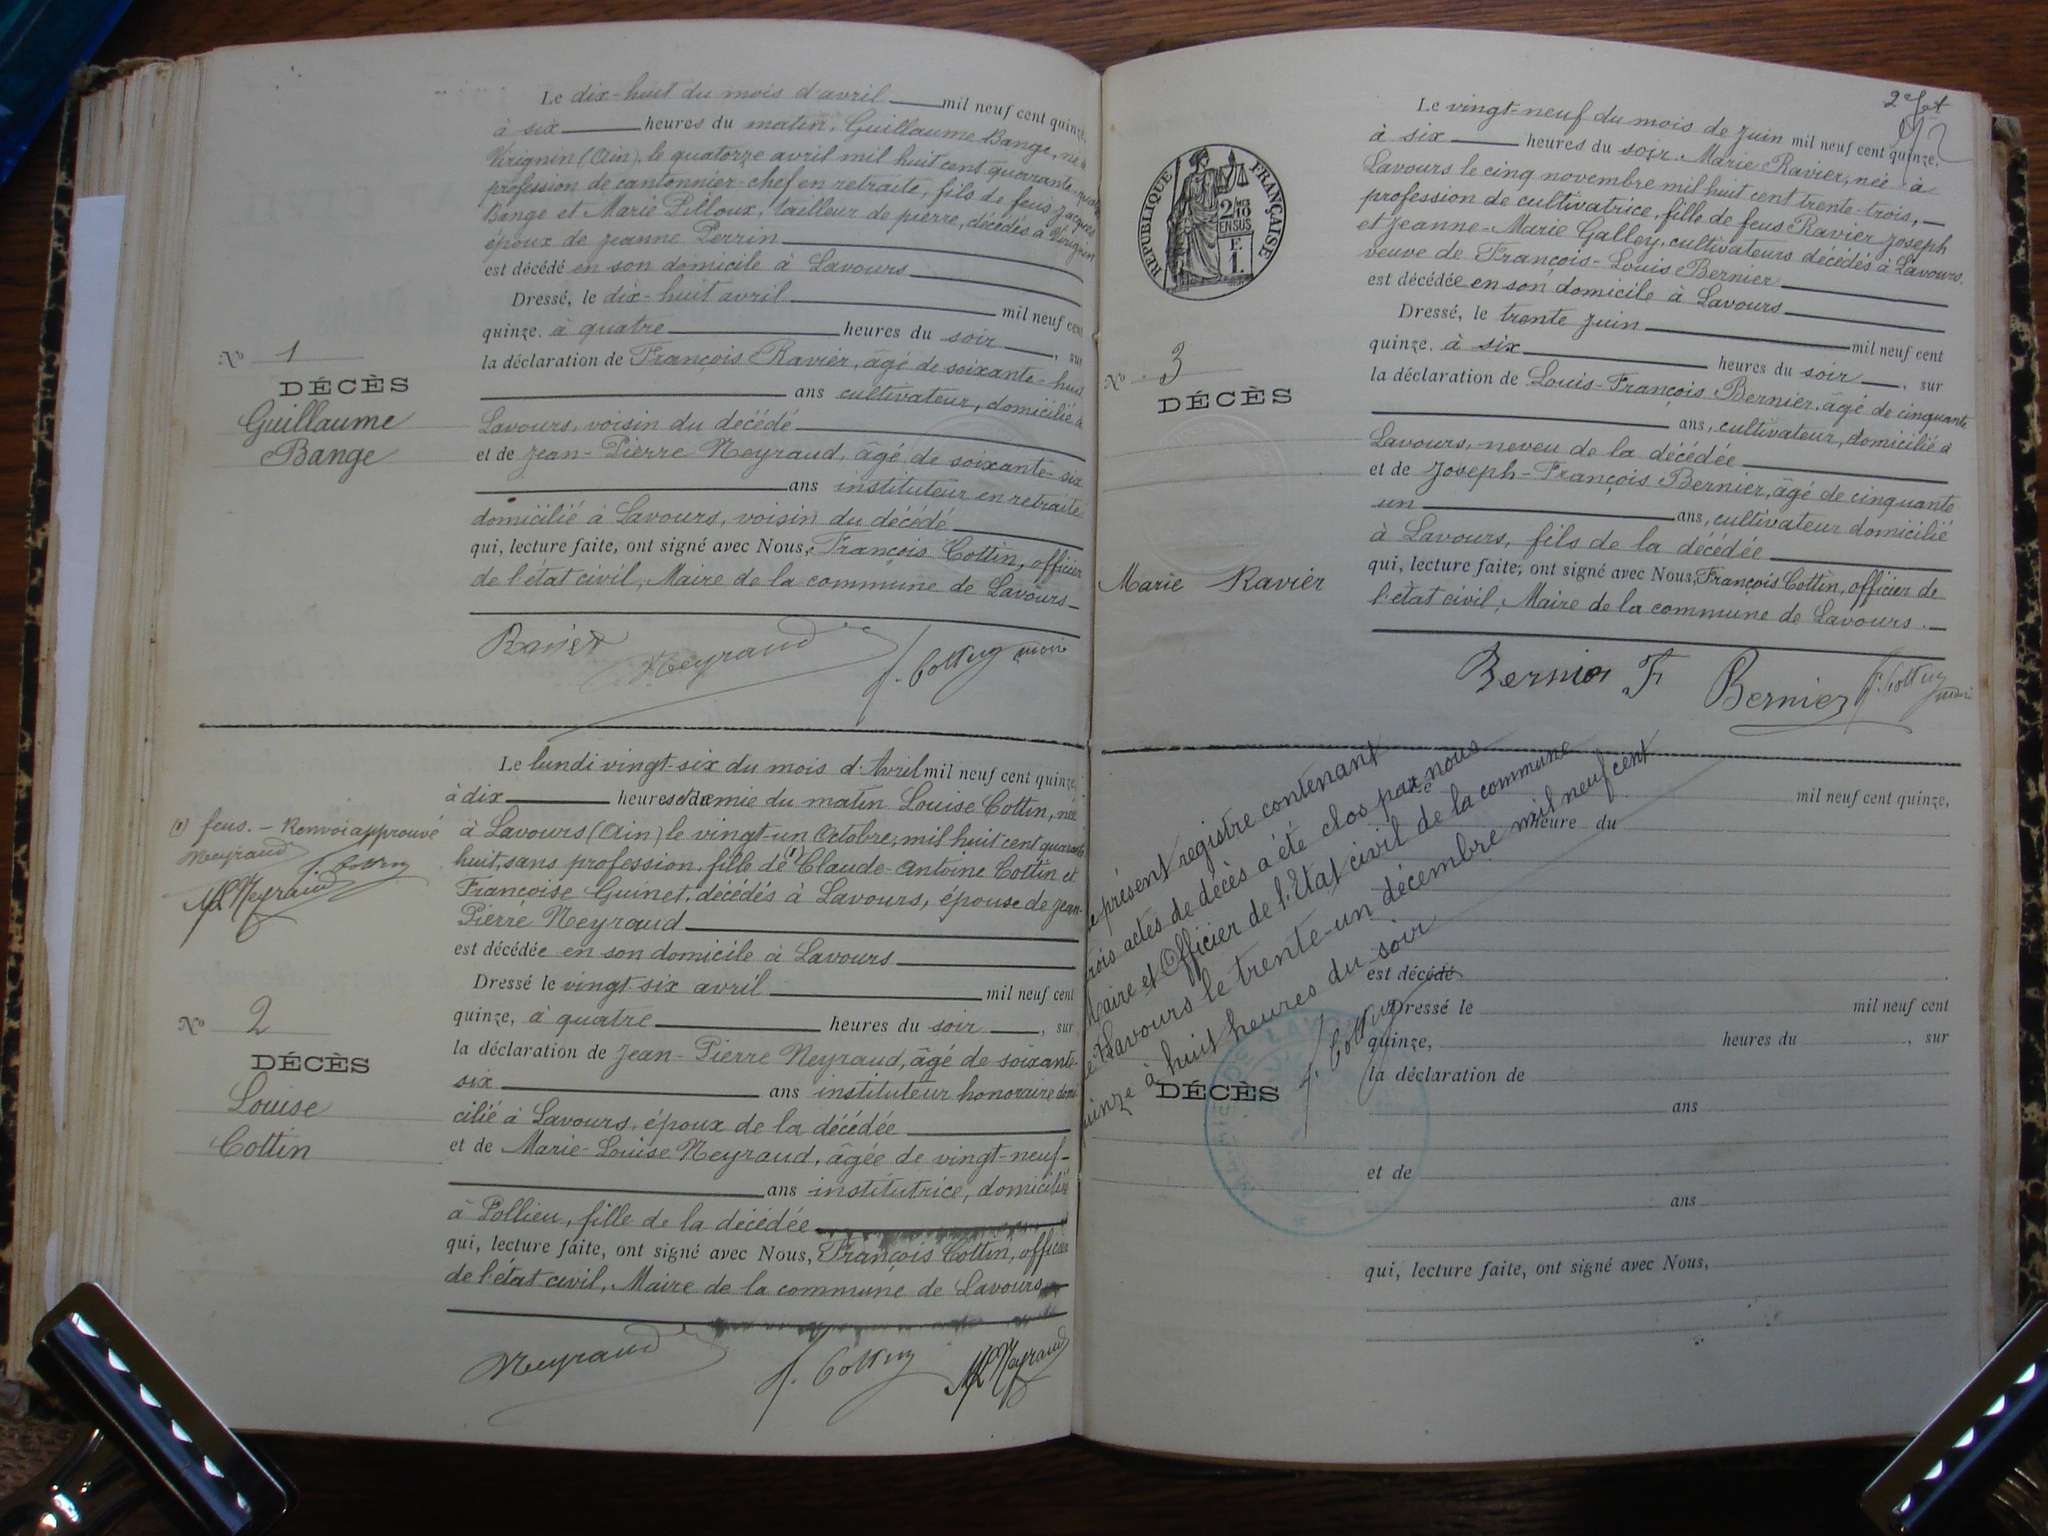 Le dix-huit du mois d'avril mil neuf cent quinze,
à six heures du matin, Guillaume Bange, né à
Virignin (Ain), le quatorze avril mil huit cent quarante-quatre
profession de cantonnier-chef en retraite, fils de feus Jacques
Bange et Marie Pilloux, tailleur de pierre, décédés à Virignin
époux de Jeanne Perrin
est décédé en son domicile à Lavours
Dressé, le dix-huit avril mil neuf cent
quinze. à quatre heures du soir, sur
la déclaration de François Ravier, âgé de soixante-huit
ans cultivateur, domicilié à
Lavours, voisin du décédé
et de Jean-Pierre Neyraud, âgé de soixante-six
ans instituteur en retraite
domicilié à Lavours, voisin du décédé
qui, lecture faite, ont signé avec Nous, François Cottin, officier
de l'état civil, Maire de la commune de Lavours
Ravier Neyraud f. Cottin maire
No 1
DÉCÈS
Guillaume
Bange
Le lundi vingt-six du mois d'Avril mil neuf cent quinze,
à dix heures et demie du matin Louise Cottin, née
à Lavours (Ain) le vingt-un Octobre, mil huit cent quarante
huit, sans profession, fille de (1) Claude-Antoine Cottin et
Françoise Guinet, décédés à Lavours, épouse de Jean-
Pierre Neyraud
est décédée en son domicile à Lavours
Dressé le vingt-six avril mil neuf cent
quinze, à quatre heures du soir, sur
la déclaration de Jean-Pierre Neyraud, âgé de soixante-
six ans instituteur honoraire domi
cilié à Lavours, époux de la décédée
et de Marie-Louise Neyraud, âgée de vingt-neuf
ans institutrice, domiciliée
à Pollieu, fille de la décédée
qui, lecture faite, ont signé avec Nous, François Cottin, officier
de l'état civil, Maire de la commune de Lavours
Neyraud f. Cottin ML Neyraud
(1) feus. - Renvoi approuvé
Neyraud f. Cottin
ML Neyraud
No 2
DÉCÈS
Louise
Cottin
2e
RÉPUBLIQUE FRANÇAISE
2/10
EN SUS
Le vingt-neuf du mois de Juin mil neuf cent quinze,
à six heures du soir Marie Ravier, née à
Lavours le cinq novembre mil huit cent trente-trois,
profession de cultivatrice, fille de feus Ravier Joseph
et Jeanne-Marie Galley, cultivateurs décédés à Lavours,
veuve de François-Louis Bernier
est décédée en son domicile à Lavours
Dressé, le trente Juin mil neuf cent
quinze. à six heures du soir, sur
la déclaration de Louis-François Bernier, âgé de cinquante
ans, cultivateur, domicilié à
Lavours, neveu de la décédée
et de Joseph-François Bernier, âgé de cinquante
un ans, cultivateur domicilié
à Lavours, fils de la décédée
qui, lecture faite, ont signé avec Nous, François Cottin, officier de
l'état civil, Maire de la commune de Lavours.
Bernier F Bernier f. Cottin maire
No 3
DÉCÈS
Marie Ravier
Le présent registre contenant
trois actes de décès a été clos par nous
Maire et Officier de l'Etat civil de la commune
de Lavours le trente-un décembre mil neuf cent
quinze à huit heures du soir
f. Cottin
Le mil neuf cent quinze,
heure du
est décédé
Dressé le mil neuf cent
quinze, heures du , sur
la déclaration de
ans
et de
ans
qui, lecture faite, ont signé avec Nous,
DÉCÈS